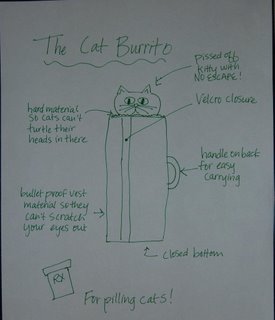 The Cat Burrito
pissed off
kitty with
NO ESCAPE!
hard material
so cats can't
turtle their
heads in there
Velcro closure
handle on back
for easy
carrying
bullet proof vest
material so they
can't scratch
your eyes out
closed bottom
RX
For pilling cats!